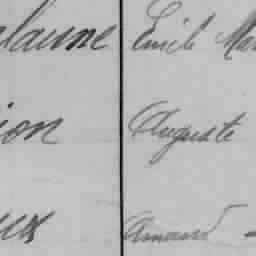 laune Emile Mar
ion Auguste
ux Amand